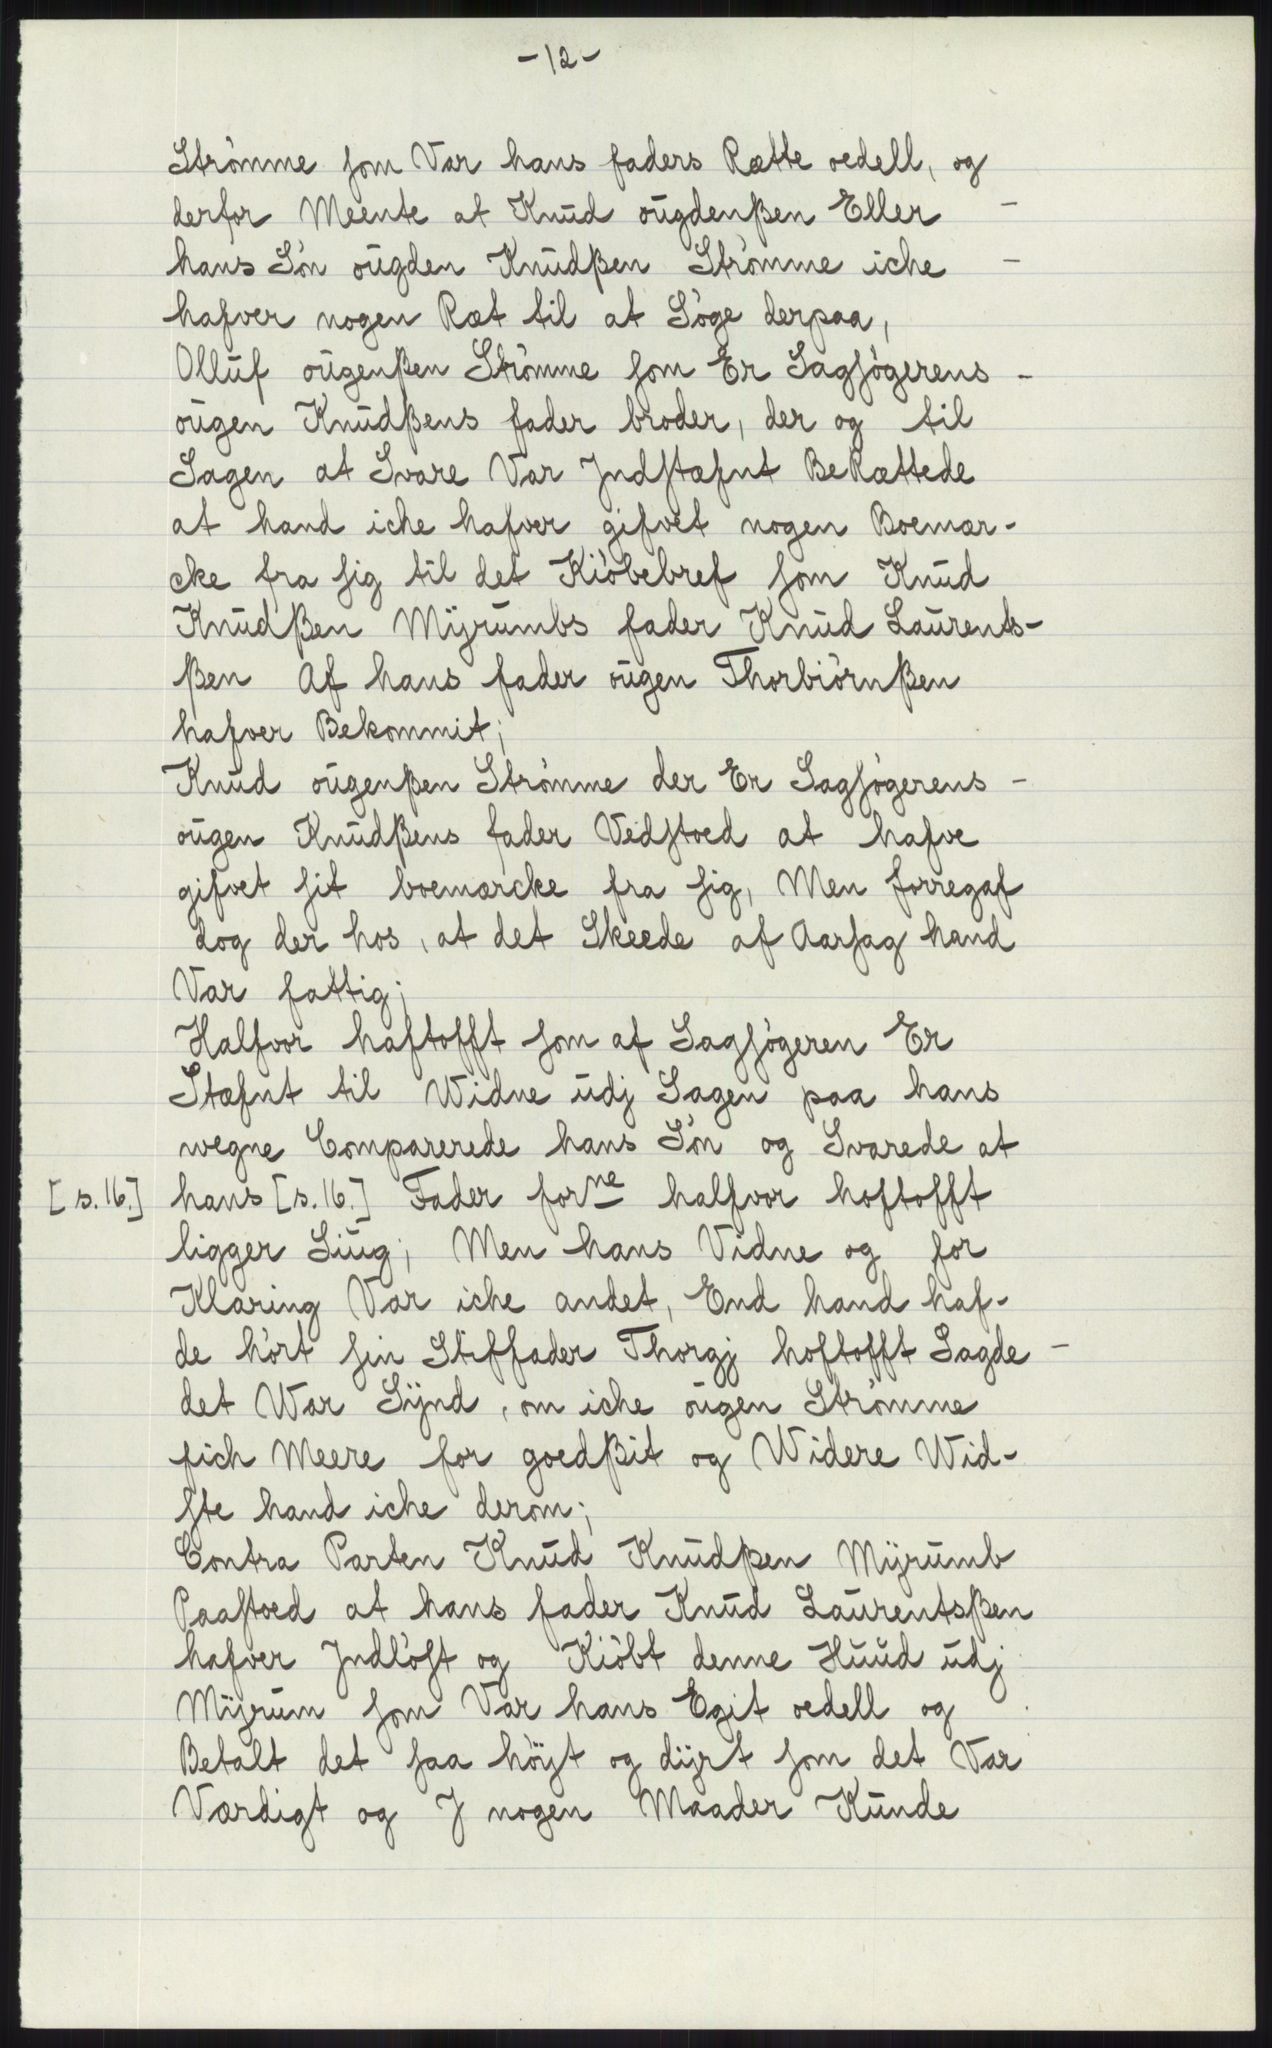 -12-
Strömme som Var hans faders Rætte oedell, og
derfor Meente at Knud ougdenßen Eller -
hans Sön ougden Knudßen Strömme iche -
hafver nogen Ræt til at Söge derpaa,
Olluf ougenßen Strömme som Er Sagsögerens -
ougen Knudßens fader broder, der og til
Sagen at Svare Var Jndstæfnt BeRættede
at hand iche hafver gifvet nogen Boemær-
cke fra sig til det Kiöbebref som Knud
Knudßen Mÿrumbs fader Knud Laurents-
ßen Af hans fader ougen Thorbiörnßen
hafver Bekommit;
Knud ougenßen Strömme der Er Sagsögerens -
ougen Knudßens fader Vedstoed at hafve
gifvet sit boemærcke fra sig, Men forregaf
dog der hos, at det Skeede af Aarsag hand
Var fattig;
Halfvor haftofft som af Sagsögeren Er
Stæfnt til Widne udj Sagen paa hans
wegne Comparerede hans Sön og Svarede at
[s.16.] hans [s.16.] Fader forne halfvor hoftofft
ligger Siug; Men hans Vidne og for
Klaring Var iche andet, End hand haf-
de hört sin Stiffader Thorgj hoftofft Sagde -
det War Sÿnd, om iche ougen Strömme
fich Meere for goedßit og Widere Wid-
ste hand iche derom;
Contra Parten Knud Knudßen Mÿrumb
Paastoed at hans fader Knud Laurentsßen
hafver Jndlöst og Kiöbt denne Huud udj
Mÿrum som Var hans Egit oedell og
Betalt det saa höÿt og dÿrt som det Var
Værdigt og J nogen Maader Kunde